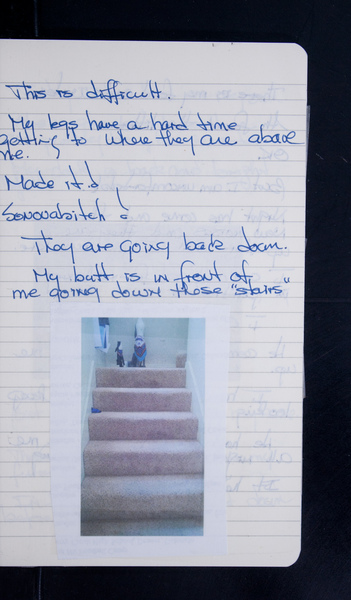 This is difficult.
My legs have a hard time
getting to where they are above
me.
Made it!
Sonovabitch!
They are going back down.
My butt is in front of
me going down these "stairs"